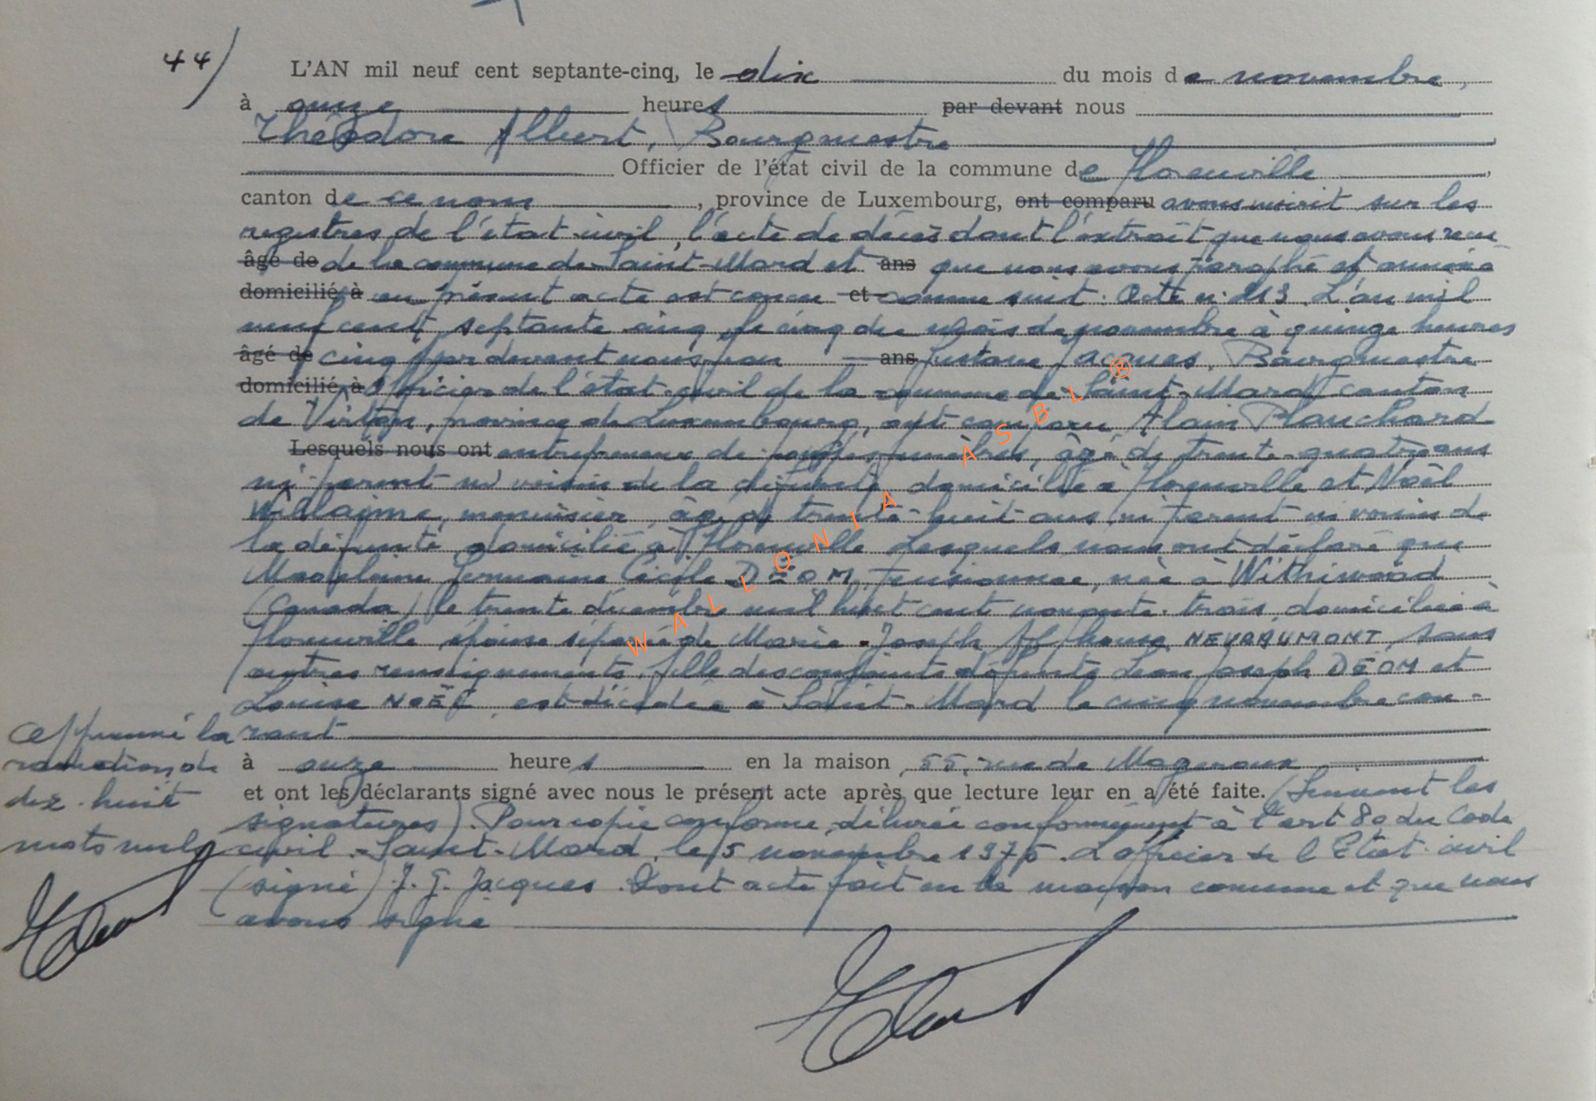 44/
L'AN mil neuf cent septante-cinq, le dix du mois de novembre,
à onze heures par devant nous
Théodore Albert, Bourgmestre
Officier de l'état civil de la commune de Florenville
canton de ce nom, province de Luxembourg, ont comparu avons inscrit sur les
registres de l'état-civil, l'acte de décès dont l'extrait que nous avons reçu
âgé de de la commune de Saint-Mard et ans que nous avons paraphé et annexé
domicilié à au présent acte est conçu et comme suit. Acte n° 213 L'an mil
neuf cent septante cinq, le cinq du mois de novembre à quinze heures
âgé de cinq par devant nous Jean ans Gustave Jacques, Bourgmestre
domicilié à Officier de l'état-civil de la commune de Saint-Mard canton
de Virton, province de Luxembourg, ont comparu Alain Planchard
Lesquels nous ont entrepreneur de pompes funèbres, âgé de trente-quatre ans
ni parent ni voisin de la défunte domicilié à Florenville et Noël
Willaime, menuisier, âgé de trente-huit ans, ni parent ni voisin de
la défunte domicilié à Florenville Lesquels nous ont déclaré que
Madeleine Germaine Cécile DEOM, Pensionnée, née à Withiwood
(Canada) le trente décembre mil huit cent nonante-trois, domiciliée à
Florenville épouse séparée de Marie-Joseph Alphonse NEVRAUMONT, sans
autres renseignements, fille des conjoints défunts Léon Joseph DEOM et
Louise NOËL, est décédée à Saint-Mard le cinq novembre cou-
Approuvé la rant
radiation de à onze heures en la maison 55, rue de Mageroux
dix-huit et ont les déclarants signé avec nous le présent acte après que lecture leur en a été faite. (Suivent les
signatures). Pour copie conforme, délivrée conformément à l'art 80 du Code
mots nuls civil. Saint-Mard, le 5 novembre 1975. L'officier de l'Etat-civil
(signé) J. G. Jacques. Dont acte fait en la maison commune et que nous
avons signé